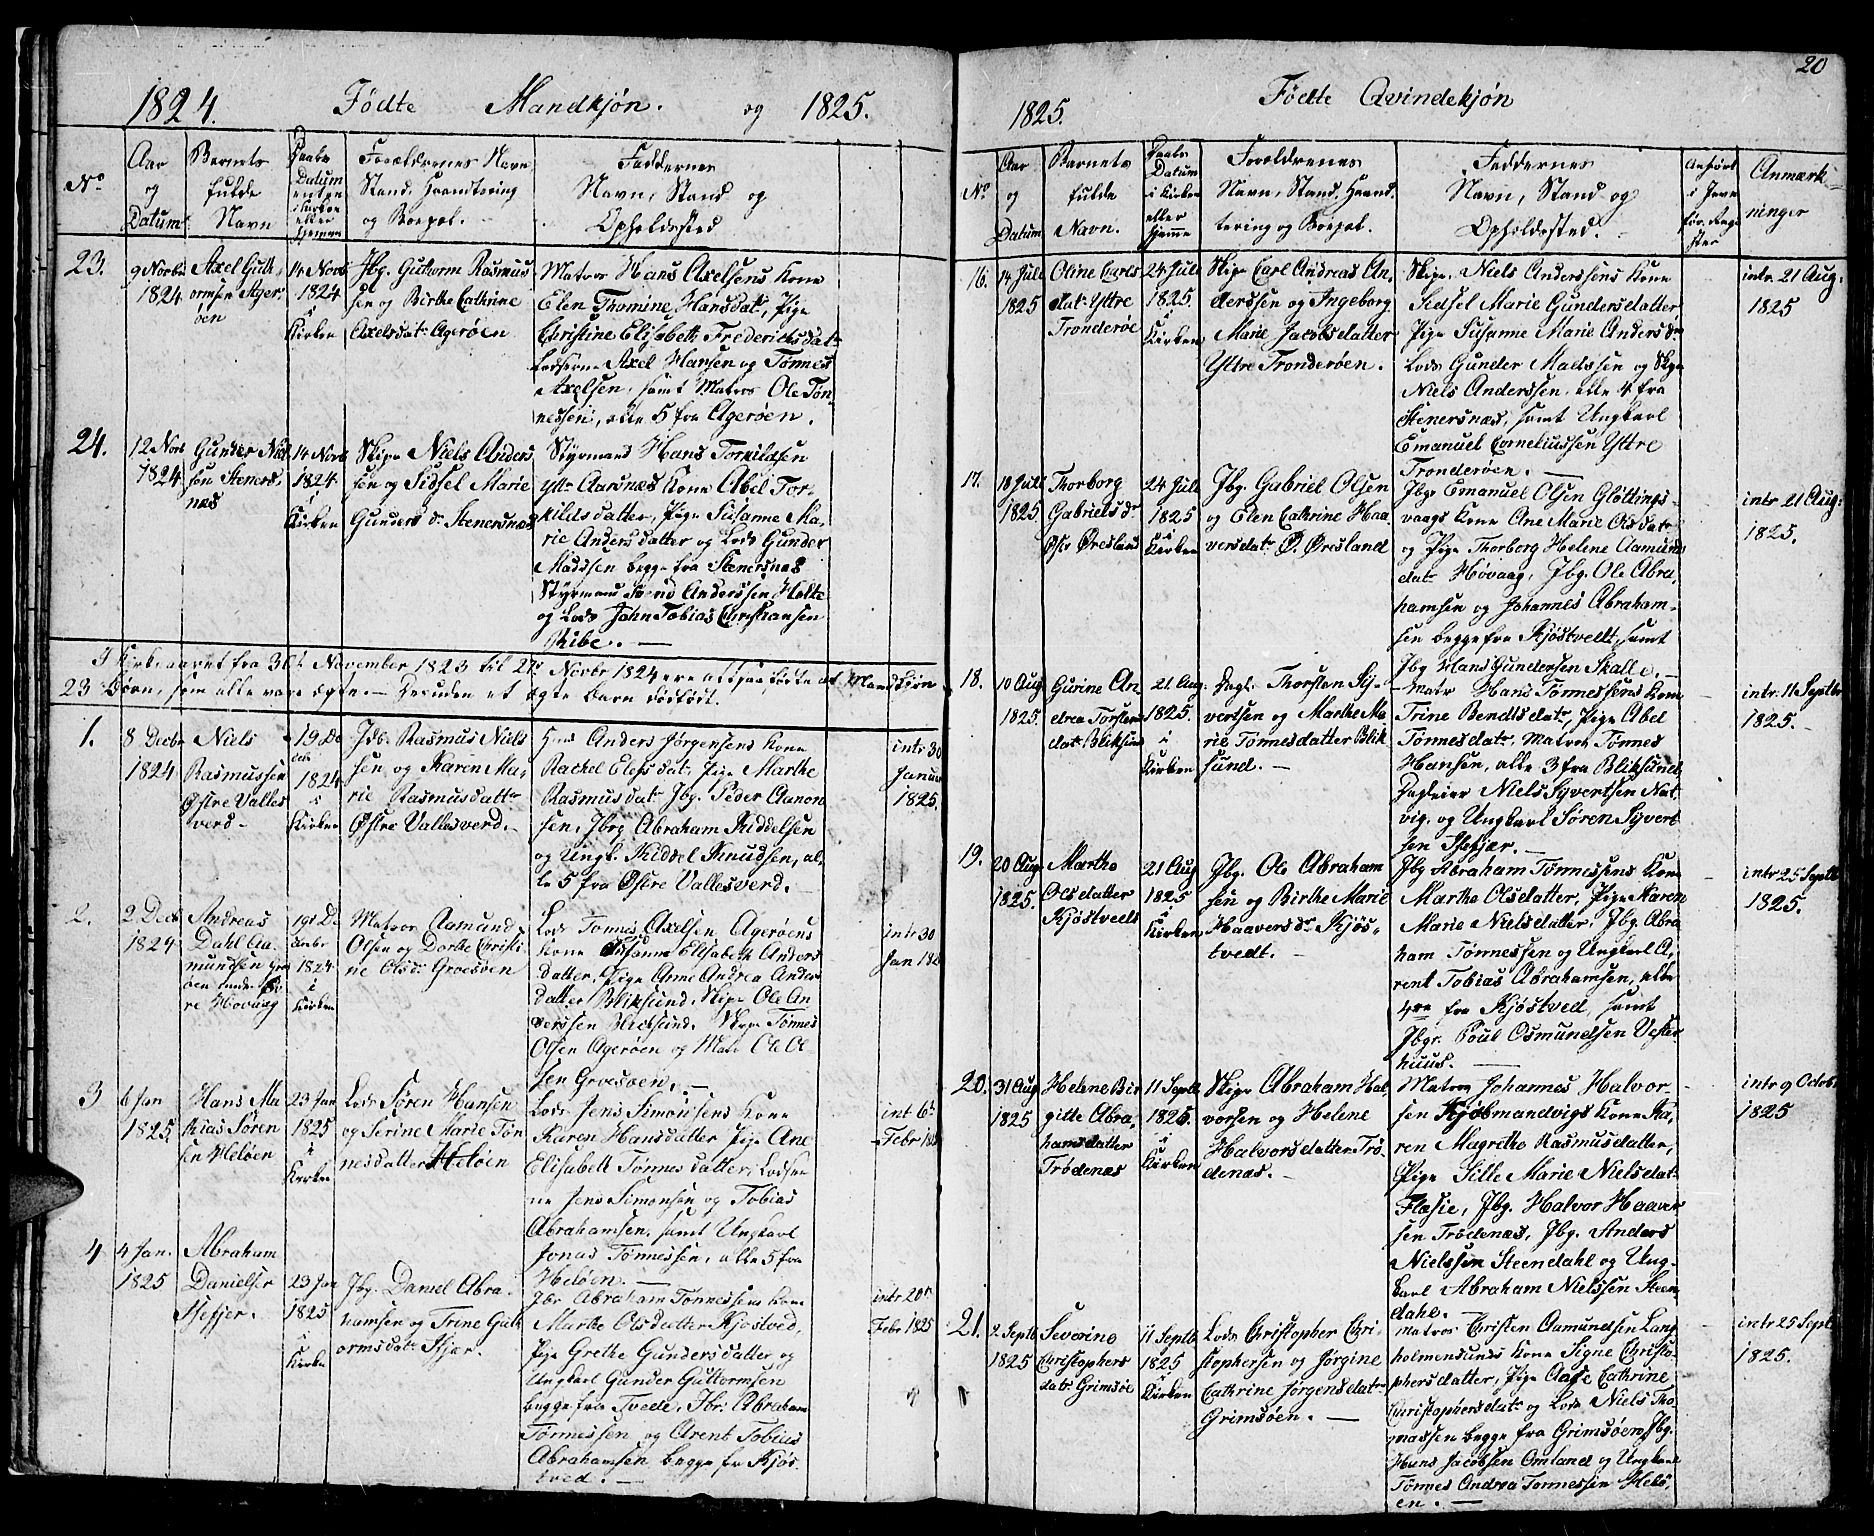 1824. Födte Mandkjøn. og 1825.
No
Aar
og
Datum
Barnets
fulde
Navn
Daabs
Datum
enten
i Kirken
eller
hjemme
Forældrenes Navn
Stand, Haandtering
og Boepæl.
Faddernes
Navn, Stand og
Opholdssted
23.
9 Novbr
1824
Axel Guth,
ormsen Ager,
öen
14 Novb
1824
i
Kirken
Jbg. Guthorm Rasmus
sen og Birthe Cathrine
Axelsdatr Agerøen
Matros Hans Axelsens Kone
Elen Thomine Hansdatr, Pige
Christine Elisabeth Frederichsdatr
Lodserne Axel Hansen og Tønnes
Axelsen, samt Matros Ole Tøn
nessen, alle 5 fra Agerøen.
24.
12 Novb
1824
Gunder Niel
sen Steners,
næs
14 Novb
1824
i
Kirken
Skipr Niels Anders
sen og Sidsel Marie
Gunders dr Stenersnæs
Styrmand Hans Torkildsen
yttr Aarsnæs Kone Abel Tor
kildsdatter, Pige Susanne Ma,
rie Andersdatter og Lods Gunder
Madssen begge fra Stenersnæs
Styrmand Svend Anderssen Holte
og Lods John Tobias Christiansen
Ribe. —
I Kirkeaaret fra 30te November 1823 til 27de Novbr 1824 ere altsaa fødte af Mandkjøn
23 Børn, som alle vare ægte. — Desuden et ægte Barn dødfødt.
1.
8 Decbr
1824
Niels
Rasmussen
Østre Valles
verd-
19 De
cbr
1824
i
Kirken
Jdb. Rasmus Niels
sen og Karen Ma,
rie Rasmusdattr
Østre Vallesverd.
Hmd Anders Jørgensens Kone
Rachel Elefsdatr Pige Marthe
Rasmusdatr Jbg. Peder Aanon
sen, Jbrg Abraham Kiddelsen
og Ungk. Kiddel Knudsen, al,
le 5 fra Østre Vallesverd. -
intr 30
Januar
1825.
2.
2 Decb
1824
Andreas
Dahl Aa
mundsen Gro
öen under
re Hovaag
19de De
cember
1824
i
Kirken
Matros Aamund
Olsen og Dorthe Christi
ne Olsdr Groesøen
Lods Tønnes Axelsen Agerøens
Kone Susanne Elisabeth Anders
datter, Pige Anne Andrea Ander
datter Bliksund, Skipr Ole An
derssen Bliksund. Skipr Tønnes
Olsen Agerøen og Matr Ole Ol
sen Groesøen. —
intr 30
Jan 182
3
6 Jan
1825.
Hans Ma
thias Søren
sen Heløen
23 Jan
1825
i
Kirken
Lods Søren Hansen
og Serine Marie Tøn
nesdatter Heløen
Lods Jens Simonsens Kone
Karen Hansdatter Pige Ane
Elisabeth Tønnesdatter, Lodser
ne Jens Simonsen og Tobias
Abrahamsen, samt Ungkarl
Jonas Tønnessen, alle 5 fra
Heløen. —
int 6te
Febr 182
4
4 Jan.
1825
Abraham
Danielsen
Isefjer.
23 Jan
1825
i
Kirken
Jbg. Daniel Abra,
hamsen og Trine Guth
ormsdatr Isfjær.
Jbr Abraham Tønnessens Kone
Marthe Olsdatter Kjøstved,
Pige Grethe Gundersdatter og
Ungkarl Gunder Guttormsen
begge fra Tvede, Jbr. Abraham
Tønnessen og Arent Tobias
Abrahamsen begge fr Kjøs
tved. —
intr 20de
Febr 1825
20
1825. Födte Qvindekjøn
No
Aar
og
Datum
Barnets
fulde
Navn.
Daabs
Datum
i Kirken
eller
hjemme
Forældrenes
Navn, Stand, Haand
tering og Boepæl.
Faddernes
Navn, Stand og
Opholdssted.
Anført
i Jevn
før. Regi
ster
Anmærk
ninger
16.
14 Juli
1825
Oline Carls
datr Yttre
Tronderöe
24 Juli
1825.
i
Kirken
Skipr Carl Andreas An,
derssen og Ingeborg
Marie Jacobsdatter
Yttre Tronderøen.
Skipr. Niels Anderssens Kone
Sidsel Marie Gundersdatter
Pige Susanne Marie Andersdr
Lods Gunder Madssen og Skpr
Niels Anderssen, alle 4 fra
Stenersnæs, samt Ungkarl
Emanuel Corneliussen Yttre
Tronderøen. —
intr 21 Aug:
1825
17.
18 Juli
1825
Thorborg
Gabrielsdr
Østr Øresland
24 Juli
1825
i
Kirken
Jbg. Gabriel Olsen
og Elen Cathrine Haa
versdatr Ø. Øresland
Jbgr Emanuel Olsen Gløttings,
vaags Kone Ane Marie Olsdatr
og Pige Thorborg Helene Aamunds
datr Høvaag, Jbg. Ole Abra,
hamsen og Johannes Abraham,
sen begge fra Kjøstvedt, samt
Jbg Hans Gundersen Skalle. —
intr 21 Aug:
1825.
18.
10 Aug
1825.
Gurine An
drea Torstens
datr Bliksund
21 Aug:
1825.
i
Kirken
Dagl. Thorsten Sy-
vertsen og Marthe Ma
rie Tønnesdatter Blik
sund. -
Matr Hans Tønnessens Kone
Trine Bendtsdatr, Pige Abel
Tønnesdatr. Matros Tønnes
Hansen, alle 3 fra Bliksund,
Dagleier Niels Syvertsen Nat
vig, og Ungkarl Søren Syvert
sen Isefjær. —
intr 11 Septbr
1825.
19.
20 Aug
1825.
Marthe
Olsdatter
Kjøstveels
21 Aug
1825
i
Kirken
Jbg. Ole Abraham
sen og Birthe Marie
Haaversdr Kjøs,
tvedt.
Jbg Abraham Tønnessens Kone
Marthe Olsdatter, Pige Karen
Marie Nielsdatter, Jbg. Abra
ham Tønnessen og Ungkarl A,
rent Tobias Abrahamsen, alle
4re fra Kjøstved, samt
Jbgr. Poul Osmundsen Vester
huus. —
intr 25 Septb
1825.
20.
31 Aug
1825
Helene Bir
gitte Abra,
hamsdatter
Trødenæs
11 Septb
1825.
i
Kirken
Skipr Abraham Hal,
vorsen og Helene
Halvorsdatter Trö
denæs. -
Matros Johannes Halvor
sen Kjøbmandvigs Kone Ka,
ren Magrethe Rasmusdatter,
Pige Sille Marie Nielsdatr
Flasie, Jbg. Halvor Haaver
sen Trödenæs, Jbg. Anders
Nielssen Steendahl og Ung-
karl Abraham Nielssen Steen
dahl.
intr 9 Octobr
1825
21.
2 Septb
1825
Severine
Christophers
datr Grimsøe
11 Septb
1825
i
Kirken
Lods Christopher Chri-
stophersen og Jørgine
Cathrine Jørgensdatr
Grimsøen. —
Matros Christen Aamundsen Lang
holmensunds Kone Signe Christo-
phersdatter, Pige Aase Cathrine
Christophersdatr og Lods Niels Tho
massen begge fra Grimsøen, Jbg.
Hans Jacobsen Omland og Ungkarl
Tønnes Andrea Tønnessen Helö,
en. —
intr 25 Septb
1825.